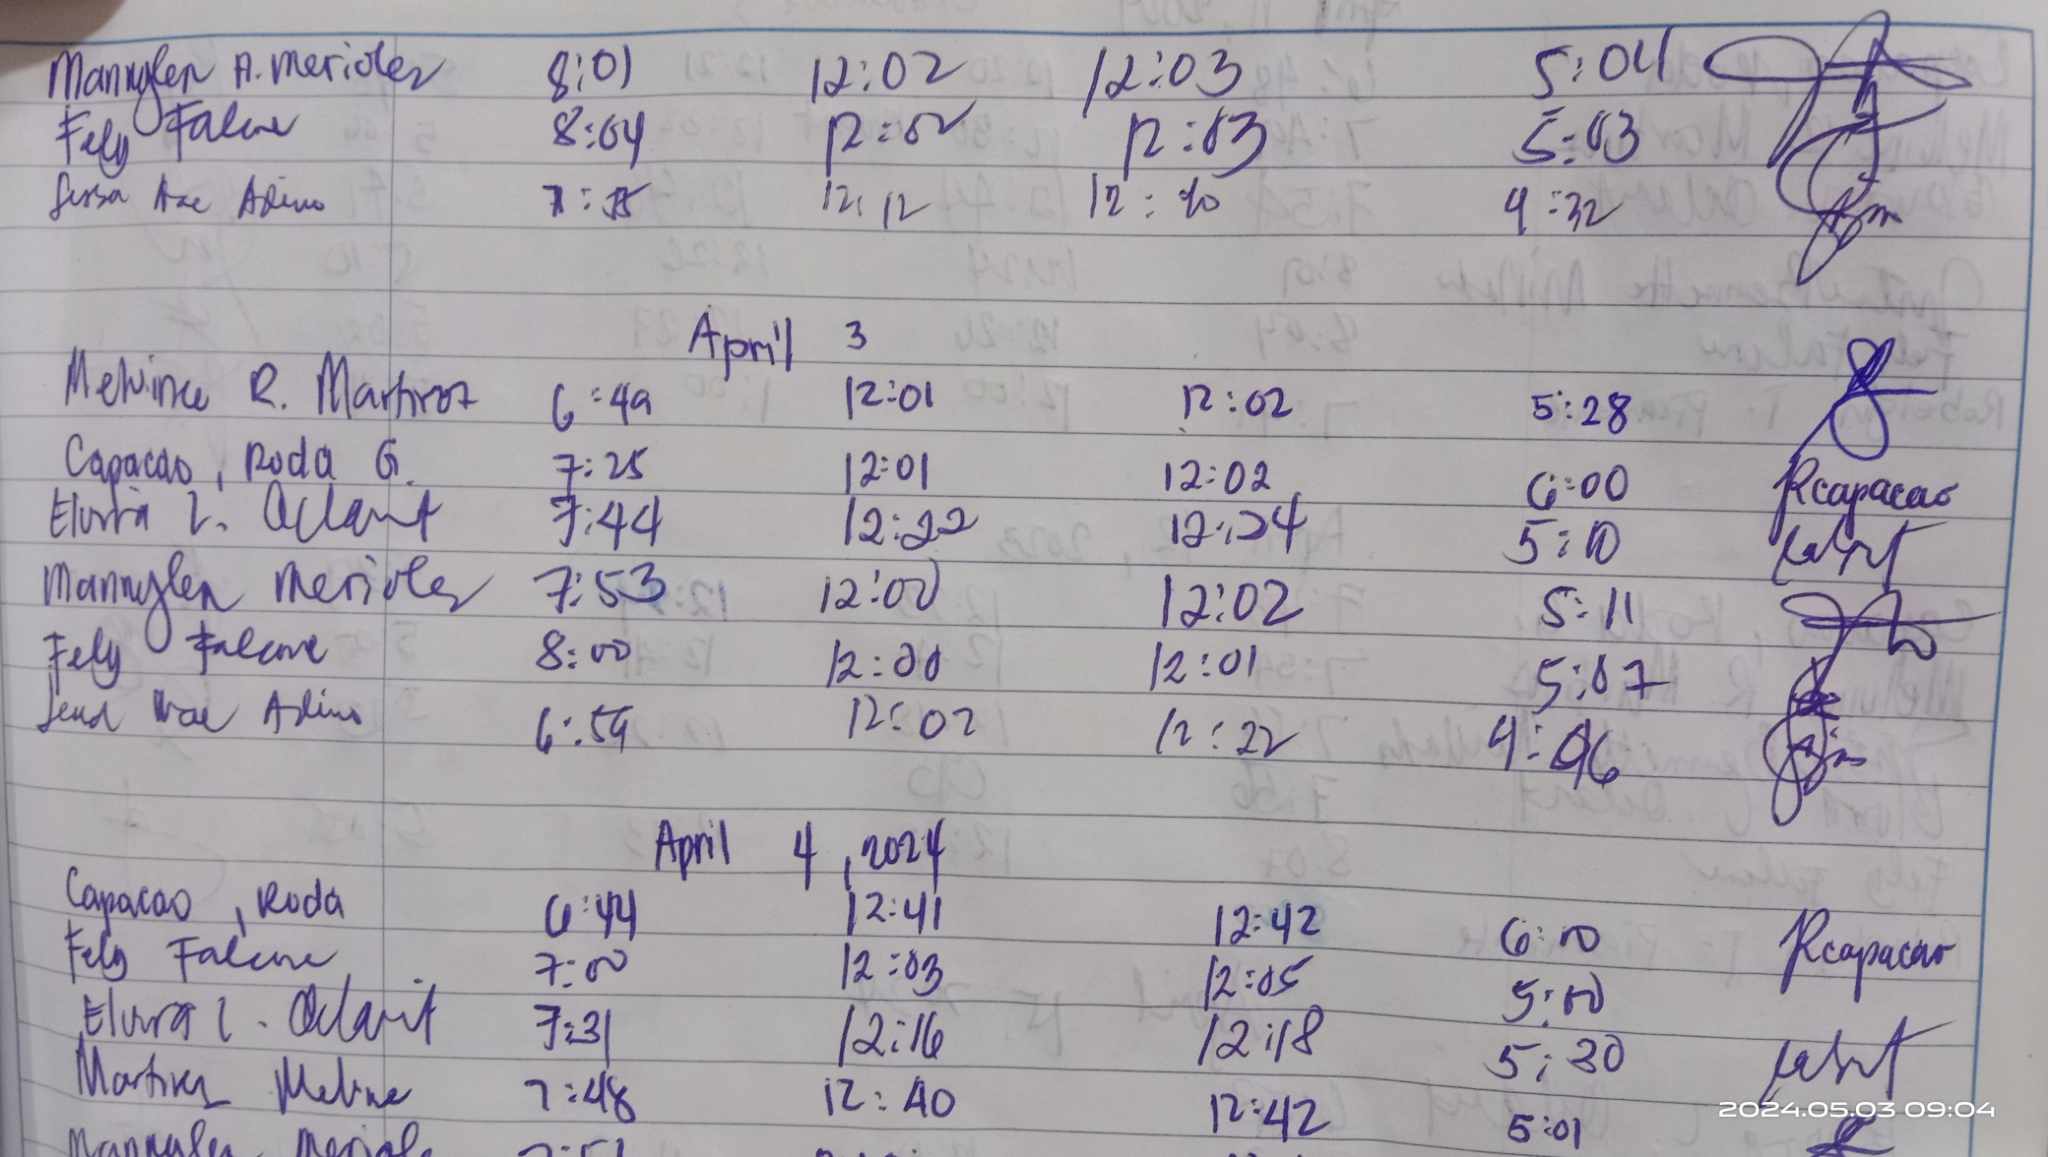 Mannylen A. Merioles 8:01 12:02 12:03 5:04
Fely Falcone 8:04 12:02 12:03 5:03
Mae Adino 12:12 12: 4:32
April 3
Melvince R. Martirez 6:49 12:01 12:02 5:28
Capacao, Roda G. 7:25 12:01 12:02 6:00 Rcapacao
Elvira L. Oclarit 7:44 12:22 12:24 5:10
Mannylen Merioles 7:53 12:00 12:02 5:11
Fely Falcone 8:00 12:00 12:01 5:07
Mae Adino 6:59 12:02 12:22
April 4, 2024
Capacao, Roda 6:44 12:41 12:42 6:00 Rcapacao
Fely Falcone 7:00 12:03 12:05 5:00
Elvira L. Oclarit 7:31 12:16 12:18 5:30
Martirez Melvince 7:48 12:40 12:42 5:01
2024.05.03 09:04
Mannylen Meriole